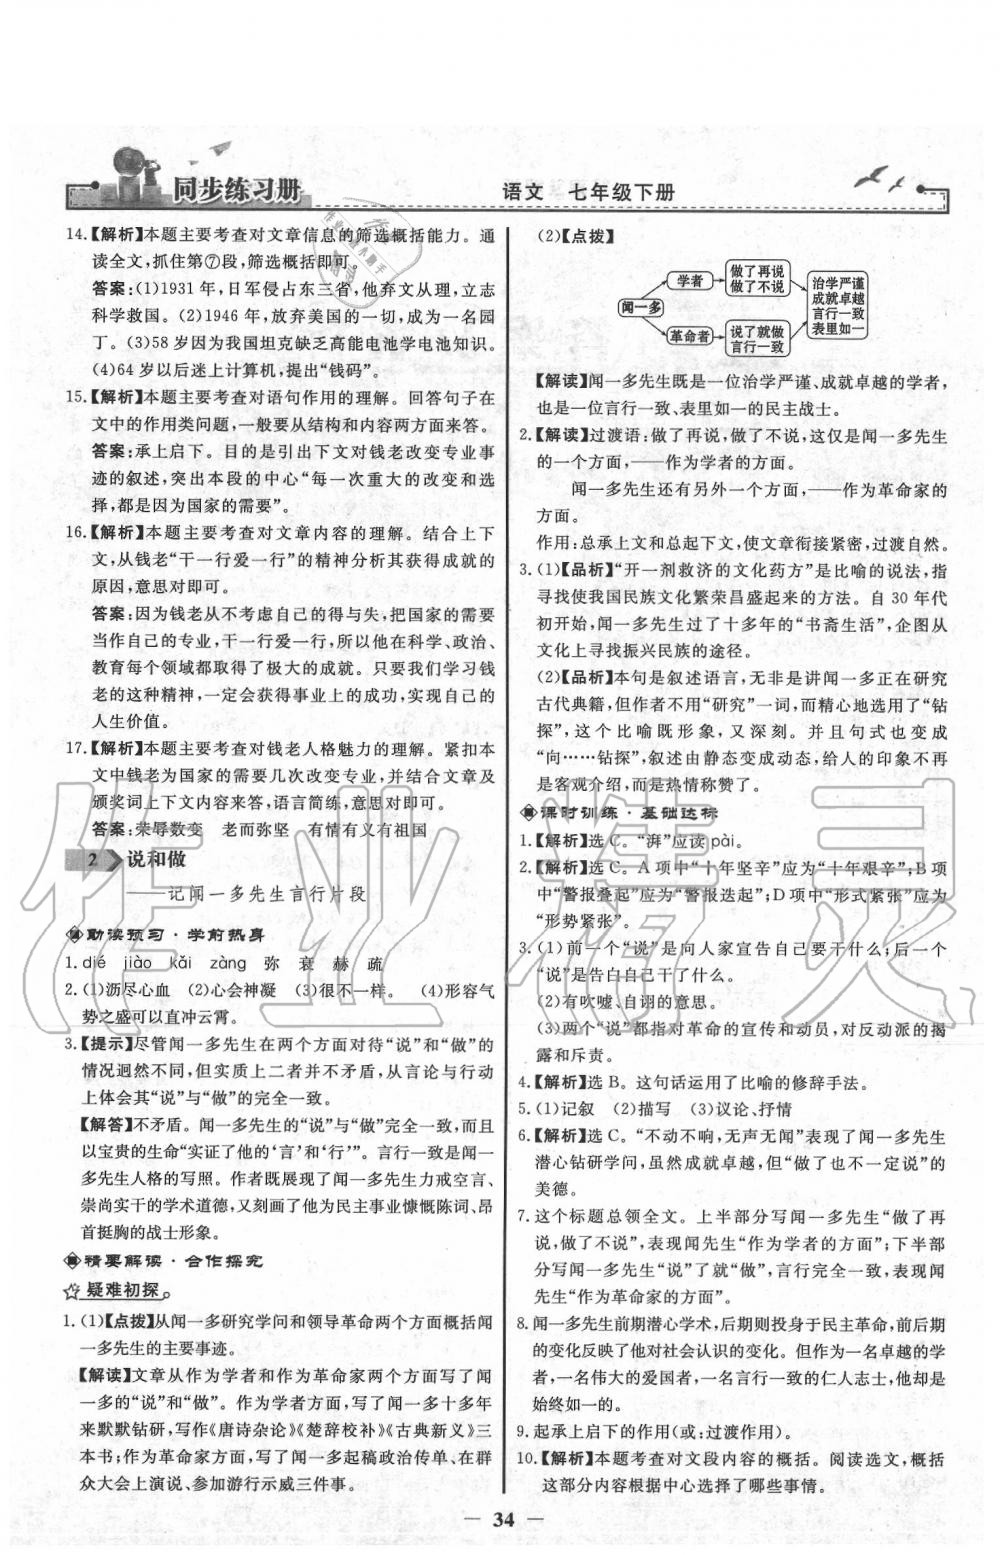 同步练习册
语文 七年级下册
14.【解析】本题主要考查对文章信息的筛选概括能力。通
读全文，抓住第⑦段，筛选概括即可。
答案：(1)1931年，日军侵占东三省，他弃文从理，立志
科学救国。(2)1946年，放弃美国的一切，成为一名园
丁。(3)58岁因为我国坦克缺乏高能电池学电池知识。
(4)64岁以后迷上计算机，提出“钱码”。
15.【解析】本题主要考查对语句作用的理解。回答句子在
文中的作用类问题，一般要从结构和内容两方面来答。
答案：承上启下。目的是引出下文对钱老改变专业事
迹的叙述，突出本段的中心“每一次重大的改变和选
择，都是因为国家的需要”。
16.【解析】本题主要考查对文章内容的理解。结合上下
文，从钱老“干一行爱一行”的精神分析其成就的
原因，意思对即可。
答案：因为钱老从不考虑自己的得与失，把国家的需要
当作自己的专业，干一行爱一行，所以他在科学、政治、
教育每个领域都取得了极大的成就。只要我们学习钱
老的这种精神，一定会获得事业上的成功，实现自己的
人生价值。
17.【解析】本题主要考查对钱老人格魅力的理解。紧扣本
文中钱老为国家的需要几次改变专业，并结合文章及
颁奖词上下文内容来答，语言简练，意思对即可。
答案：荣辱数变 老而弥坚 有情有义有祖国
2 说和做
——记闻一多先生言行片段
助读预习·学前热身
1.dié jiào kǎi zàng 弥 衰 赫 疏
2.(1)沥尽心血 (2)心会神凝 (3)很不一样。 (4)形容气
势之盛可以直冲云霄。
3.【提示】尽管闻一多先生在两个方面对待“说”和“做”的
情况迥然不同，但实质上二者并不矛盾，从言论与行动
上体会其“说”与“做”的完全一致。
【解答】不矛盾。闻一多先生的“说”与“做”完全一致，而且
以宝贵的生命“实证了他的‘言’和‘行’”。言行一致是闻一
多先生人格的写照。作者既展现了闻一多先生力戒空言、
崇尚实干的学术道德，又刻画了他为民主事业慷慨陈词、昂
首挺胸的战士形象。
精要解读·合作探究
疑难初探
1.(1)【点拨】从闻一多研究学问和领导革命两个方面概括闻
一多先生的主要事迹。
【解读】文章从作为学者和作为革命家两个方面写了闻
一多的“说”和“做”。作为学者方面，写了闻一多十多年
来默默钻研，写作《唐诗杂论》《楚辞校补》《古典新义》三
本书；作为革命家方面，写了闻一多起稿政治传单、在群
众大会上演说、参加游行示威三件事。
(2)【点拨】
闻一多
学者
做了再说
做了不说
革命者
说了就做
言行一致
治学严谨
成就卓越
言行一致
表里如一
【解读】闻一多先生既是一位治学严谨、成就卓越的学者，
也是一位言行一致、表里如一的民主战士。
2.【解读】过渡语：做了再说，做了不说，这仅是闻一多先生
的一个方面，——作为学者的方面。
闻一多先生还有另外一个方面，——作为革命家的
方面。
作用：总承上文和总起下文，使文章衔接紧密，过渡自然。
3.(1)【品析】“开一剂救济的文化药方”是比喻的说法，指
寻找使我国民族文化繁荣昌盛起来的方法。自30年代
初开始，闻一多先生过了十多年的“书斋生活”，企图从
文化上寻找振兴民族的途径。
(2)【品析】本句是叙述语言，无非是讲闻一多正在研究
古代典籍，但作者不用“研究”一词，而精心地选用了“钻
探”，这个比喻既形象，又深刻。并且句式也变成
“向……钻探”，叙述由静态变成动态，给人的印象不再
是客观介绍，而是热情称赞了。
课时训练·基础达标
1.【解析】选C。“湃”应读pài。
2.【解析】选C。A项中“十年坚辛”应为“十年艰辛”；B项
中“警报叠起”应为“警报迭起”；D项中“形式紧张”应为
“形势紧张”。
3.(1)前一个“说”是向人家宣告自己要干什么；后一个
“说”是告白自己干了什么。
(2)有吹嘘、自诩的意思。
(3)两个“说”都指对革命的宣传和动员，对反动派的揭
露和斥责。
4.【解析】选B。这句话运用了比喻的修辞手法。
5.(1)记叙 (2)描写 (3)议论、抒情
6.【解析】选C。“不动不响，无声无闻”表现了闻一多先生
潜心钻研学问，虽然成就卓越，但“他也不一定说”的
美德。
7.这个标题总领全文。上半部分写闻一多先生“做了再
说，不说”，表现闻先生“作为学者的方面”；下半部
分写闻一多先生“说”了就“做”，言行完全一致，表现闻
先生“作为革命家的方面”。
8.闻一多先生前期潜心学术，后期投身于民主革命，前后期
的变化反映了他对社会认识的变化。但作为一名卓越的学
者，一名伟大的爱国者，一名言行一致的仁人志士，他却是
始终如一的。
9.起承上启下的作用（或：过渡作用）。
10.【解析】本题考查对文段内容的概括。阅读选文，概括
这部分内容根据中心选择了哪些事情。
— 34 —
作业精灵